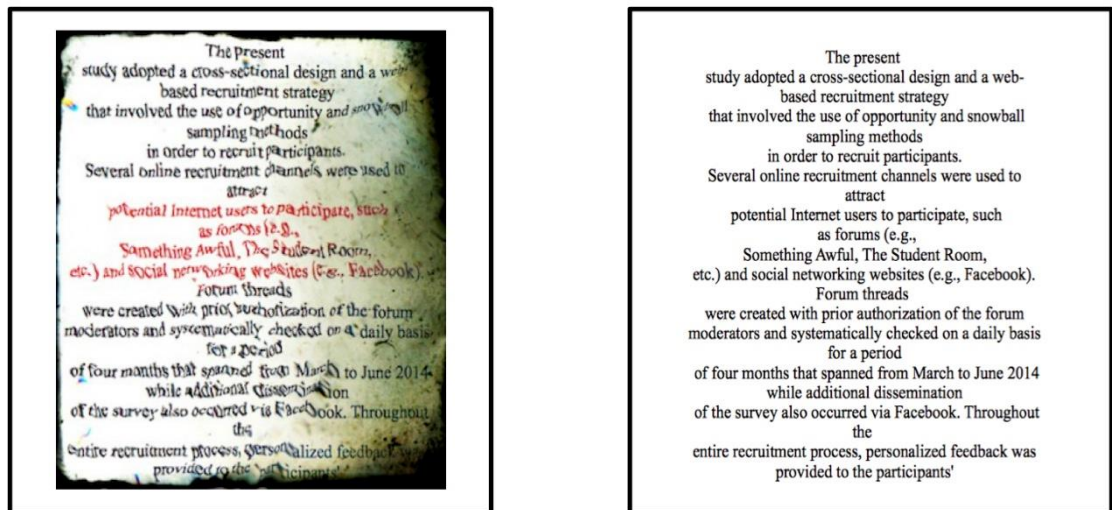 The present
study adopted a cross-sectional design and a web-
based recruitment strategy
that involved the use of opportunity and snowball
sampling methods
in order to recruit participants.
Several online recruitment channels were used to
attract
potential Internet users to participate, such
as forums (e.g.,
Something Awful, The Student Room,
etc.) and social networking websites (e.g., Facebook).
Forum threads
were created with prior authorization of the forum
moderators and systematically checked on a daily basis
for a period
of four months that spanned from March to June 2014
while additional dissemination
of the survey also occurred via Facebook. Throughout
the
entire recruitment process, personalized feedback was
provided to the participants'
The present
study adopted a cross-sectional design and a web-
based recruitment strategy
that involved the use of opportunity and snowball
sampling methods
in order to recruit participants.
Several online recruitment channels were used to
attract
potential Internet users to participate, such
as forums (e.g.,
Something Awful, The Student Room,
etc.) and social networking websites (e.g., Facebook).
Forum threads
were created with prior authorization of the forum
moderators and systematically checked on a daily basis
for a period
of four months that spanned from March to June 2014
while additional dissemination
of the survey also occurred via Facebook. Throughout
the
entire recruitment process, personalized feedback was
provided to the participants'